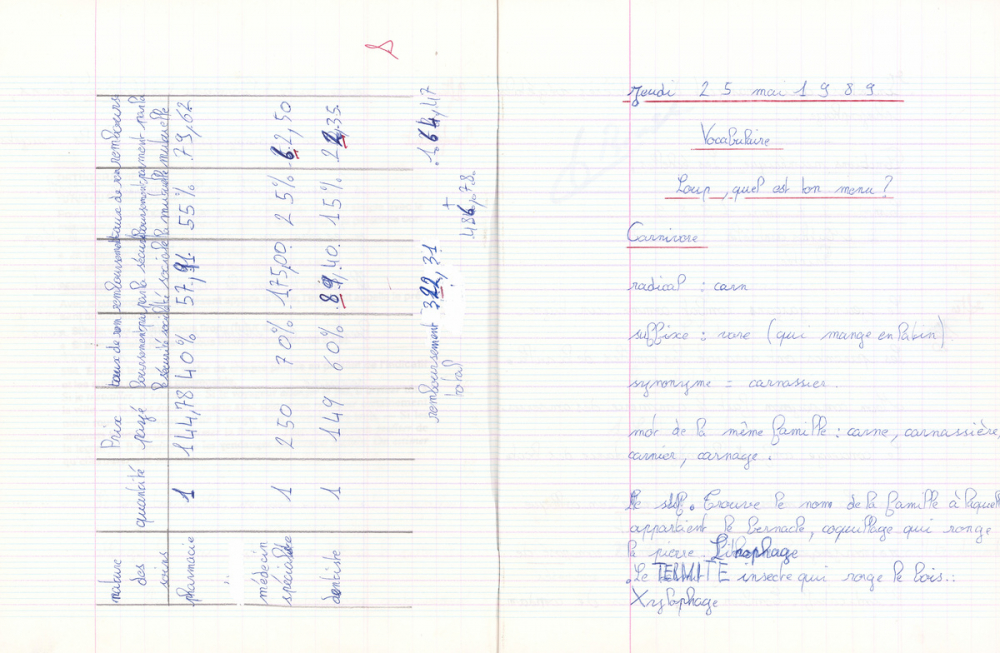 nature des soins | quantité | Prix payé | taux de remboursement par la sécurité sociale | remboursement par la sécurité sociale | taux de remboursement par la mutuelle | remboursement par la mutuelle
pharmacie | 1 | 144,78 | 40% | 57,91 | 55% | 79,62
médecin spécialiste | 1 | 250 | 70% | 175,00 | 25% | 62,50
dentiste | 1 | 149 | 60% | 89,40 | 15% | 22,35
remboursement total 322,31 + 164,47
486,78
Jeudi 25 mai 1989
Vocabulaire
Loup, quel est ton menu ?
Carnivore
radical : carn
suffixe : vore (qui mange en latin)
synonyme = carnassier.
mot de la même famille : carne, carnassière,
carnier, carnage.
Le suf. Trouve le nom de la famille à laquelle
appartient le bernacle, coquillage qui ronge
la pierre. Lithophage
.Le TERMITE insecte qui ronge le bois..:
Xylophage